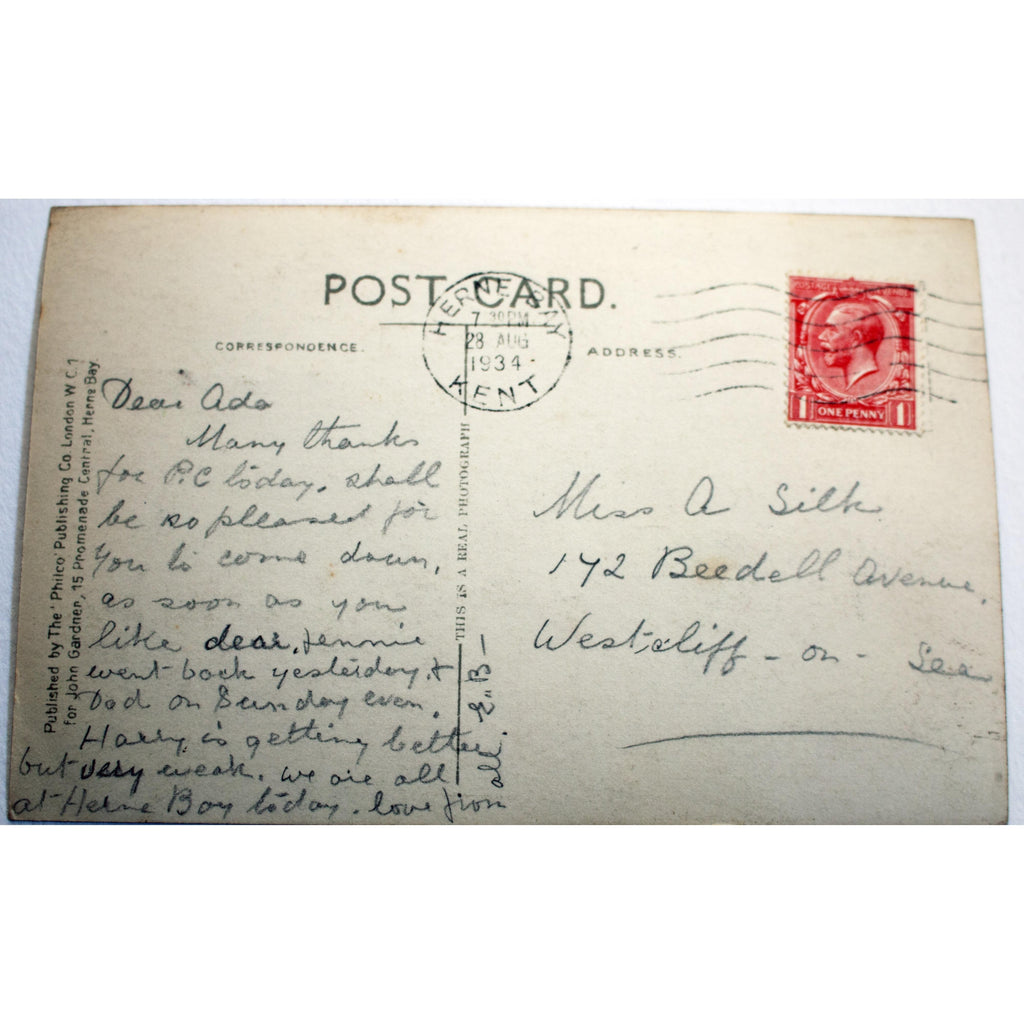 POST CARD.
HERNE BAY
7 30PM
28 AUG
1934
KENT
POSTAGE REVENUE
1 ONE PENNY 1
CORRESPONDENCE.
ADDRESS.
Published by The 'Philco' Publishing Co. London W.C.1
for John Gardner, 15 Promenade Central, Herne Bay.
THIS IS A REAL PHOTOGRAPH
Dear Ada
Many thanks
for P.C today, shall
be so pleased for
you to come down,
as soon as you
like dear, Jennie
went back yesterday, &
Dad on Sunday even,
Harry is getting better
but very weak. we are all
at Herne Bay today. love from
all. E" B-
Miss A Silk
172 Beedell Avenue,
Westcliff - on - Sea